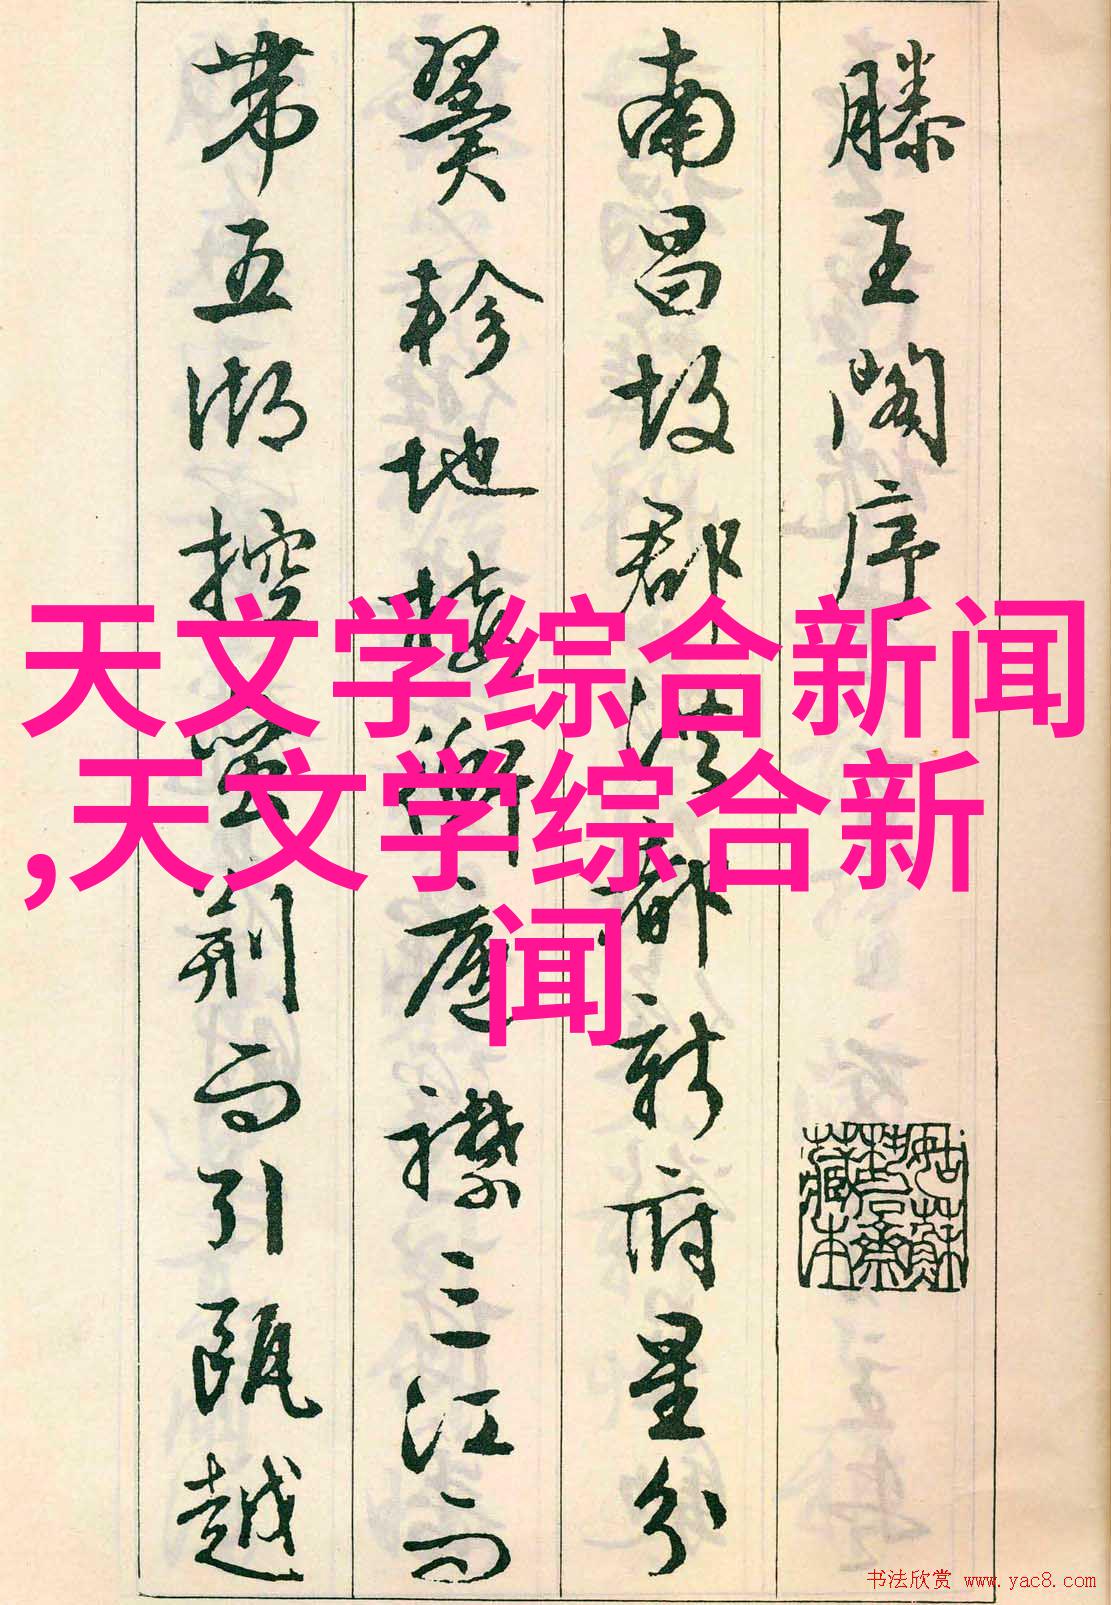 滕王阁序
南昌故郡洪都新府星分
翼轸地接衡庐襟三江而
带五湖控蛮荆而引瓯越
天文学综合新闻
,天文学综合新
闻
姑苏
藏本
书法欣赏 www.yac8.com